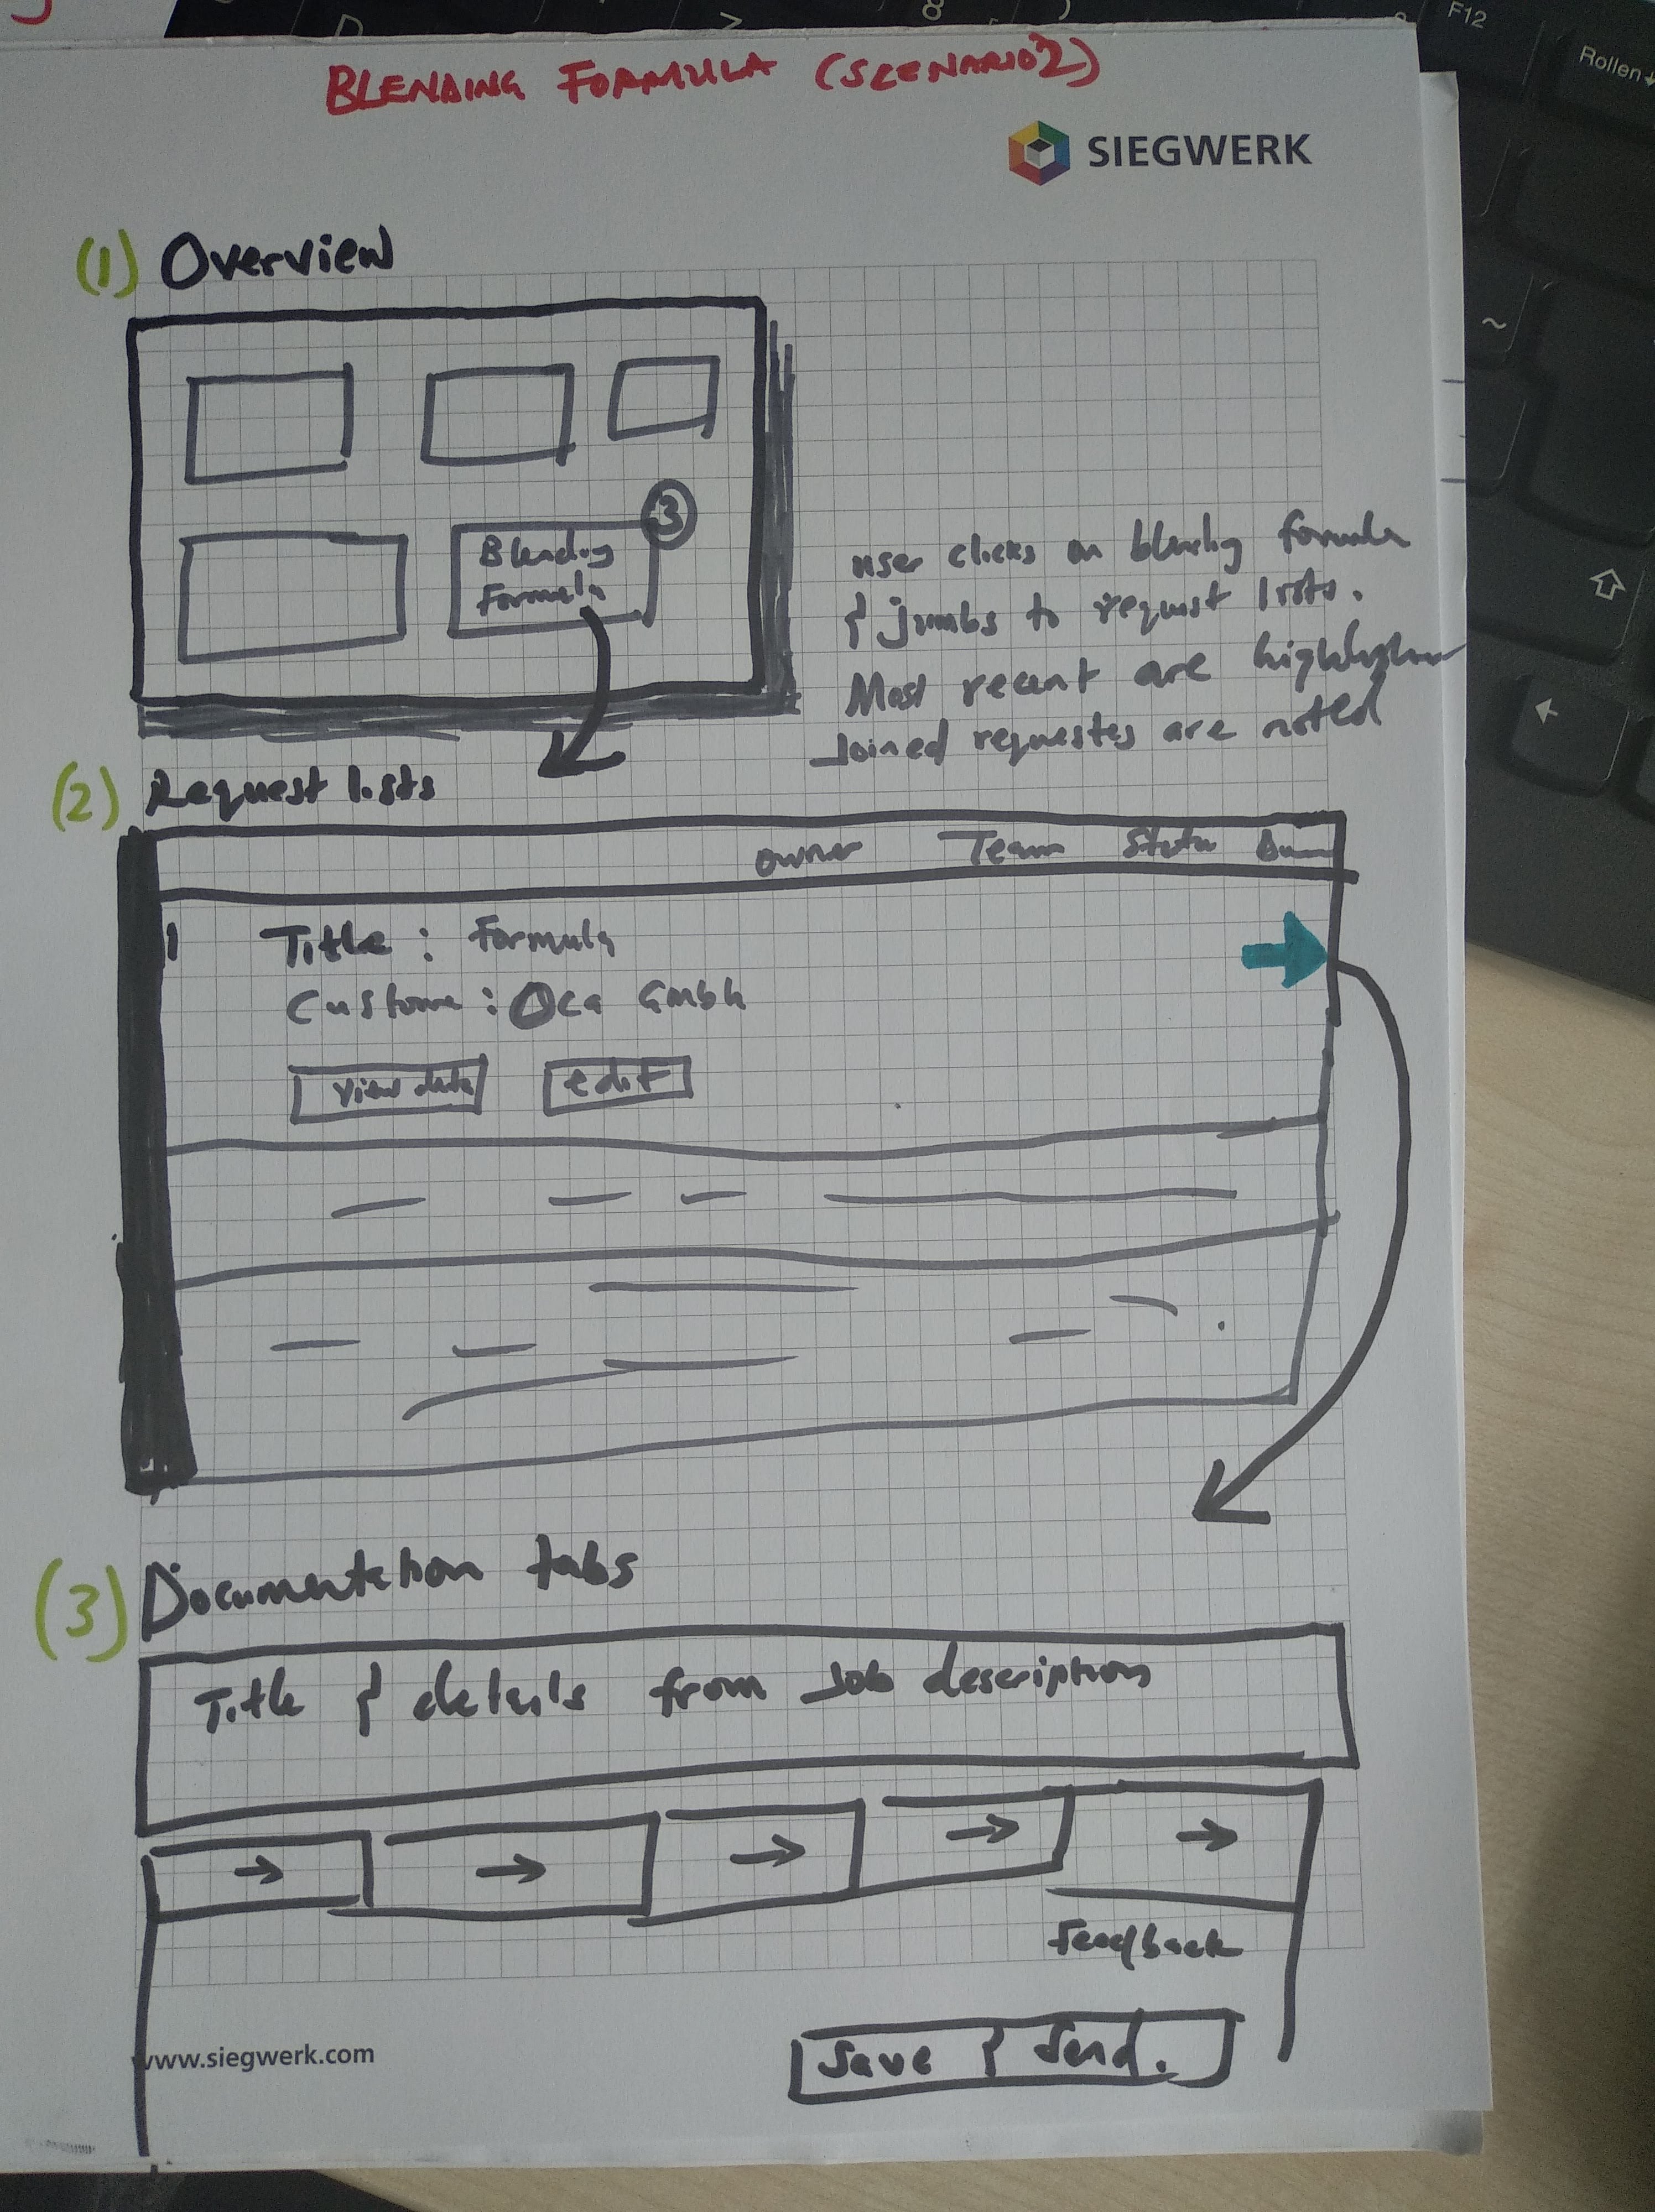 BLENDING FORMULA (SCENARIO 2)
SIEGWERK
(1) Overview
3
Blending
Formula
user clicks on blending formula
& jumbs to request lists.
Most recent are
Joined requestes are noted
(2) Request lists
owner Team Status
1 Title : Formula
Custome : Oca GmbH
View data edit
(3) Documentation tabs
Title & details from Job description
→ → → → →
Feedback
Save & Send.
www.siegwerk.com
F12
Rollen